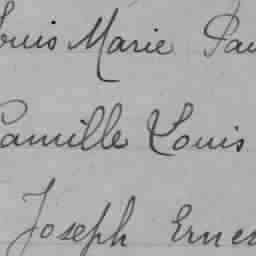 Louis Marie Pau
Camille Louis
Joseph Ernes